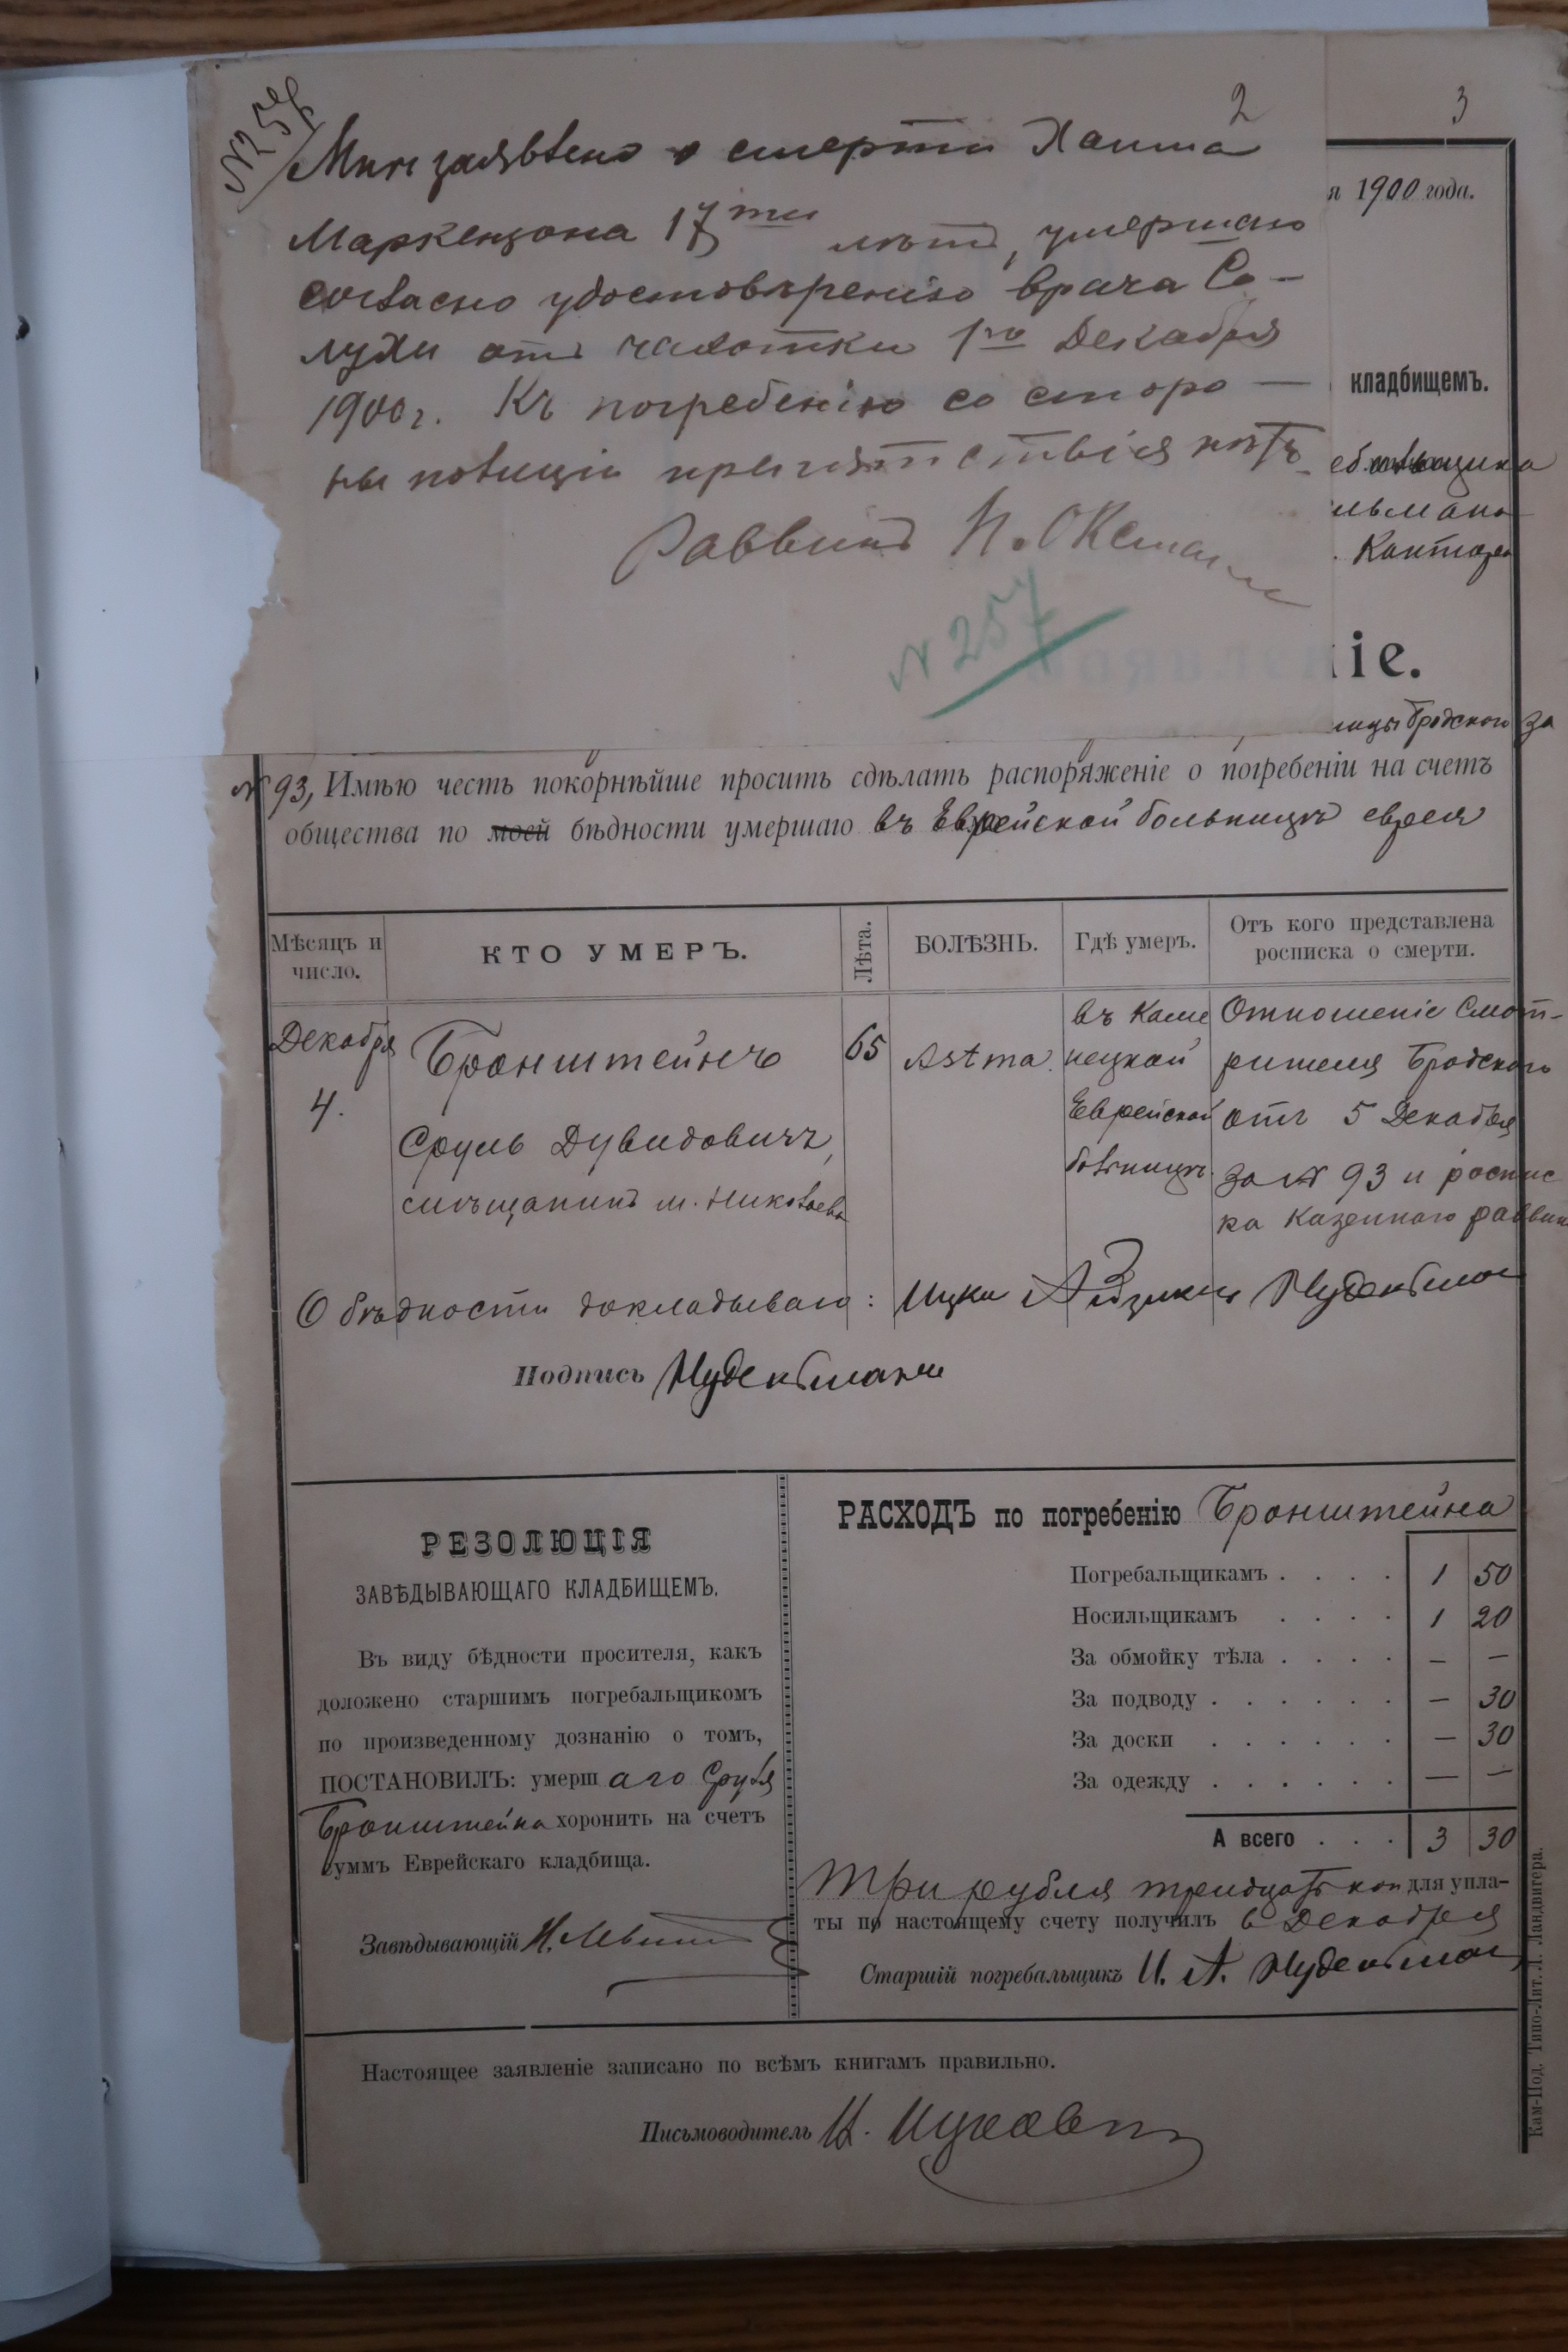 2
3
№ 257
Мнѣ заявлено о смерти Хаима
Маркензона 17ти лѣтъ, умершаго
согласно удостовѣренію врача Со-
лухи отъ чахотки 1го Декабря
1900 г. Къ погребенію со сторо-
ны полиціи препятствія нѣтъ
Раввинъ
№ 257
я 1900 года.
кладбищемъ.
льмана
іе.
ницы Бродского за
№ 93, Имѣю честь покорнѣйше просить сдѣлать распоряженіе о погребеніи на счетъ
общества по моей бѣдности умершаго въ Еврейской больницѣ еврея
Мѣсяцъ и число.
КТО УМЕРЪ.
Лѣта.
БОЛѢЗНЬ.
Гдѣ умеръ.
Отъ кого представлена росписка о смерти.
Декабря
4.
Бронштейнъ
Сруль Дувидовичъ,
мѣщанинъ м. Николаева
65
Astma.
въ Каме
нецкой
Еврейской
больницѣ.
Отношеніе Смот-
рителя Бродского
отъ 5 Декабря
за № 93 и роспис
ка Казеннаго раввина
О бѣдности докладываю: Ицко Айзикъ Нудельман
Подпись Нудельман
РЕЗОЛЮЦІЯ
ЗАВѢДЫВАЮЩАГО КЛАДБИЩЕМЪ.
Въ виду бѣдности просителя, какъ
доложено старшимъ погребальщикомъ
по произведенному дознанію о томъ,
ПОСТАНОВИЛЪ: умершаго Сруля
Бронштейна хоронить на счетъ
суммъ Еврейскаго кладбища.
Завѣдывающій
РАСХОДЪ по погребенію Бронштейна
Погребальщикамъ . . . . 1 50
Носильщикамъ . . . . 1 20
За обмойку тѣла . . . . — —
За подводу . . . . . . — 30
За доски . . . . . . — 30
За одежду . . . . . . — —
А всего . . . 3 30
Три рубля тридцать коп для упла-
ты по настоящему счету получилъ 6 Декабря
Старшій погребальщикъ И. А. Нудельман
Настоящее заявленіе записано по всѣмъ книгамъ правильно.
Письмоводитель
Кам-Под. Типо-Лит. Л. Ландвигера.